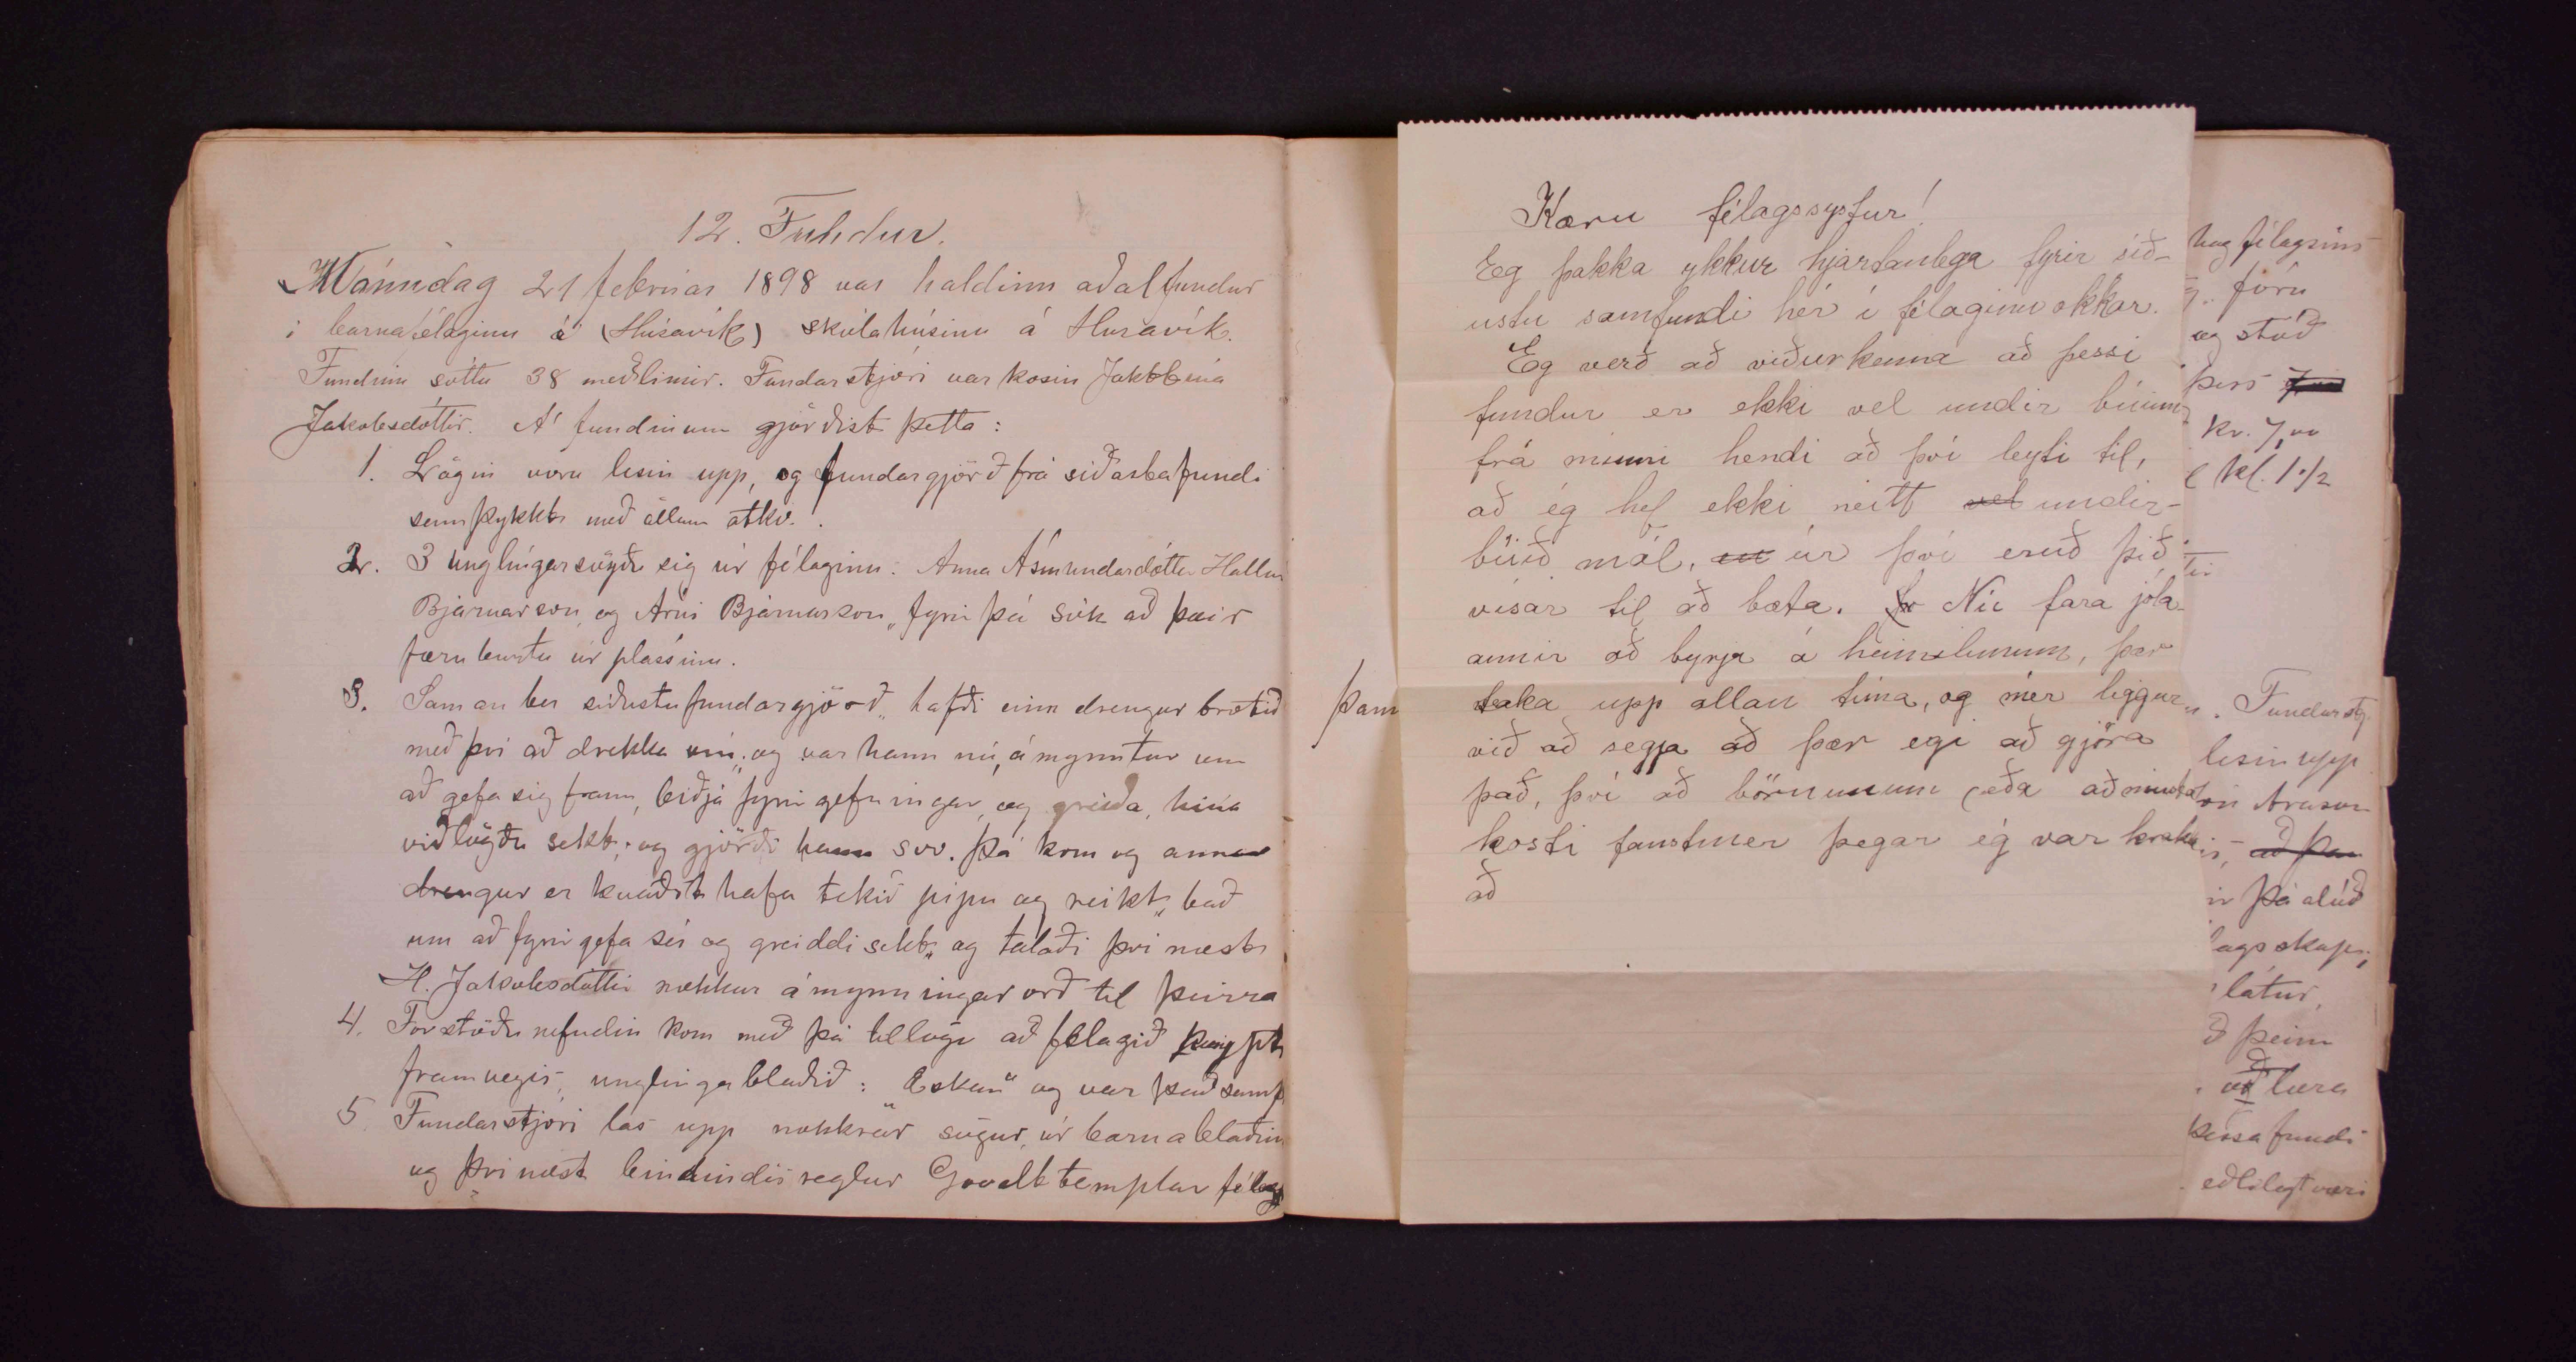 12. Fundur.
Mánudag 21 febrúar 1898 var haldinn aðalfundur
i barnafélaginu á (Húsavík) skólahúsinu á Husavík.
Fundinn sóttu 38 meðlimir. Fundarstjóri var kosin Jakobína
Jakobsdóttir. Á fundinum gjörðist þetta:
1. Lögin voru lesin upp, og fundargjörð frá síðasta fundi
samþykkt með öllum atkv.
2. 3 unglingar sögðu sig úr félaginu. Anna Ásmundardóttir Hallur
Bjarnarson, og Árni Bjarnarson, fyrir þá sök að þeir
færu burtu úr plássinu.
3. Saman ber síðustu fundargjörð, hafði einn drengur brotið
með því að drekka vín; og var hann nú, ámynntur um
að gefa sig fram, biðja fyrirgefningar, og greiða, hina
viðlögðu sekt; og gjörði hann svo. Þá kom og annar
drengur er kvaðst hafa tekið pípu og reikt, bað
um að fyrirgefa sér og greiddi sekt, og talaði því næst
H. Jakobsdóttir nokkur ámynningar orð til þeirra
4. Forstöðunefndin kom með þá tillögu að félagið keypti
framvegis, unglingablaðið: "Æskan" og var það samþ
5. Fundarstjóri las upp nokkrar sögur, úr barnablaðinu
og því næst bindindis reglur Goodtemplar félags
þann
Kæru félagssystur!
Eg þakka ykkur hjartanlega fyrir síð-
ustu samfundi hér í félaginu okkar.
Eg verð að viðurkenna að þessi
fundur er ekki vel undir búinn
frá minni hendi að því leyti til,
að ég hef ekki neitt vel undir-
búið mál, en úr því eruð þið
vísar til að bæta. Nú fara jóla
annir að byrja á heimilunum, þær
taka upp allan tíma, og mér liggur
við að segja að þær egi að gjöra
það, því að börnunum (eða að minsta
kosti fanst mer þegar ég var krakki
að
hag félagsins
fóru
og stóð
þess
kr. 7,00
kl. 1 1/2
tir
. Fundarstj.
lesin upp
on Arason
að þau
ir þá alúð
lagsskap;
látur,
ð þeim
að læra
þessa fundi
eðlilegt væri